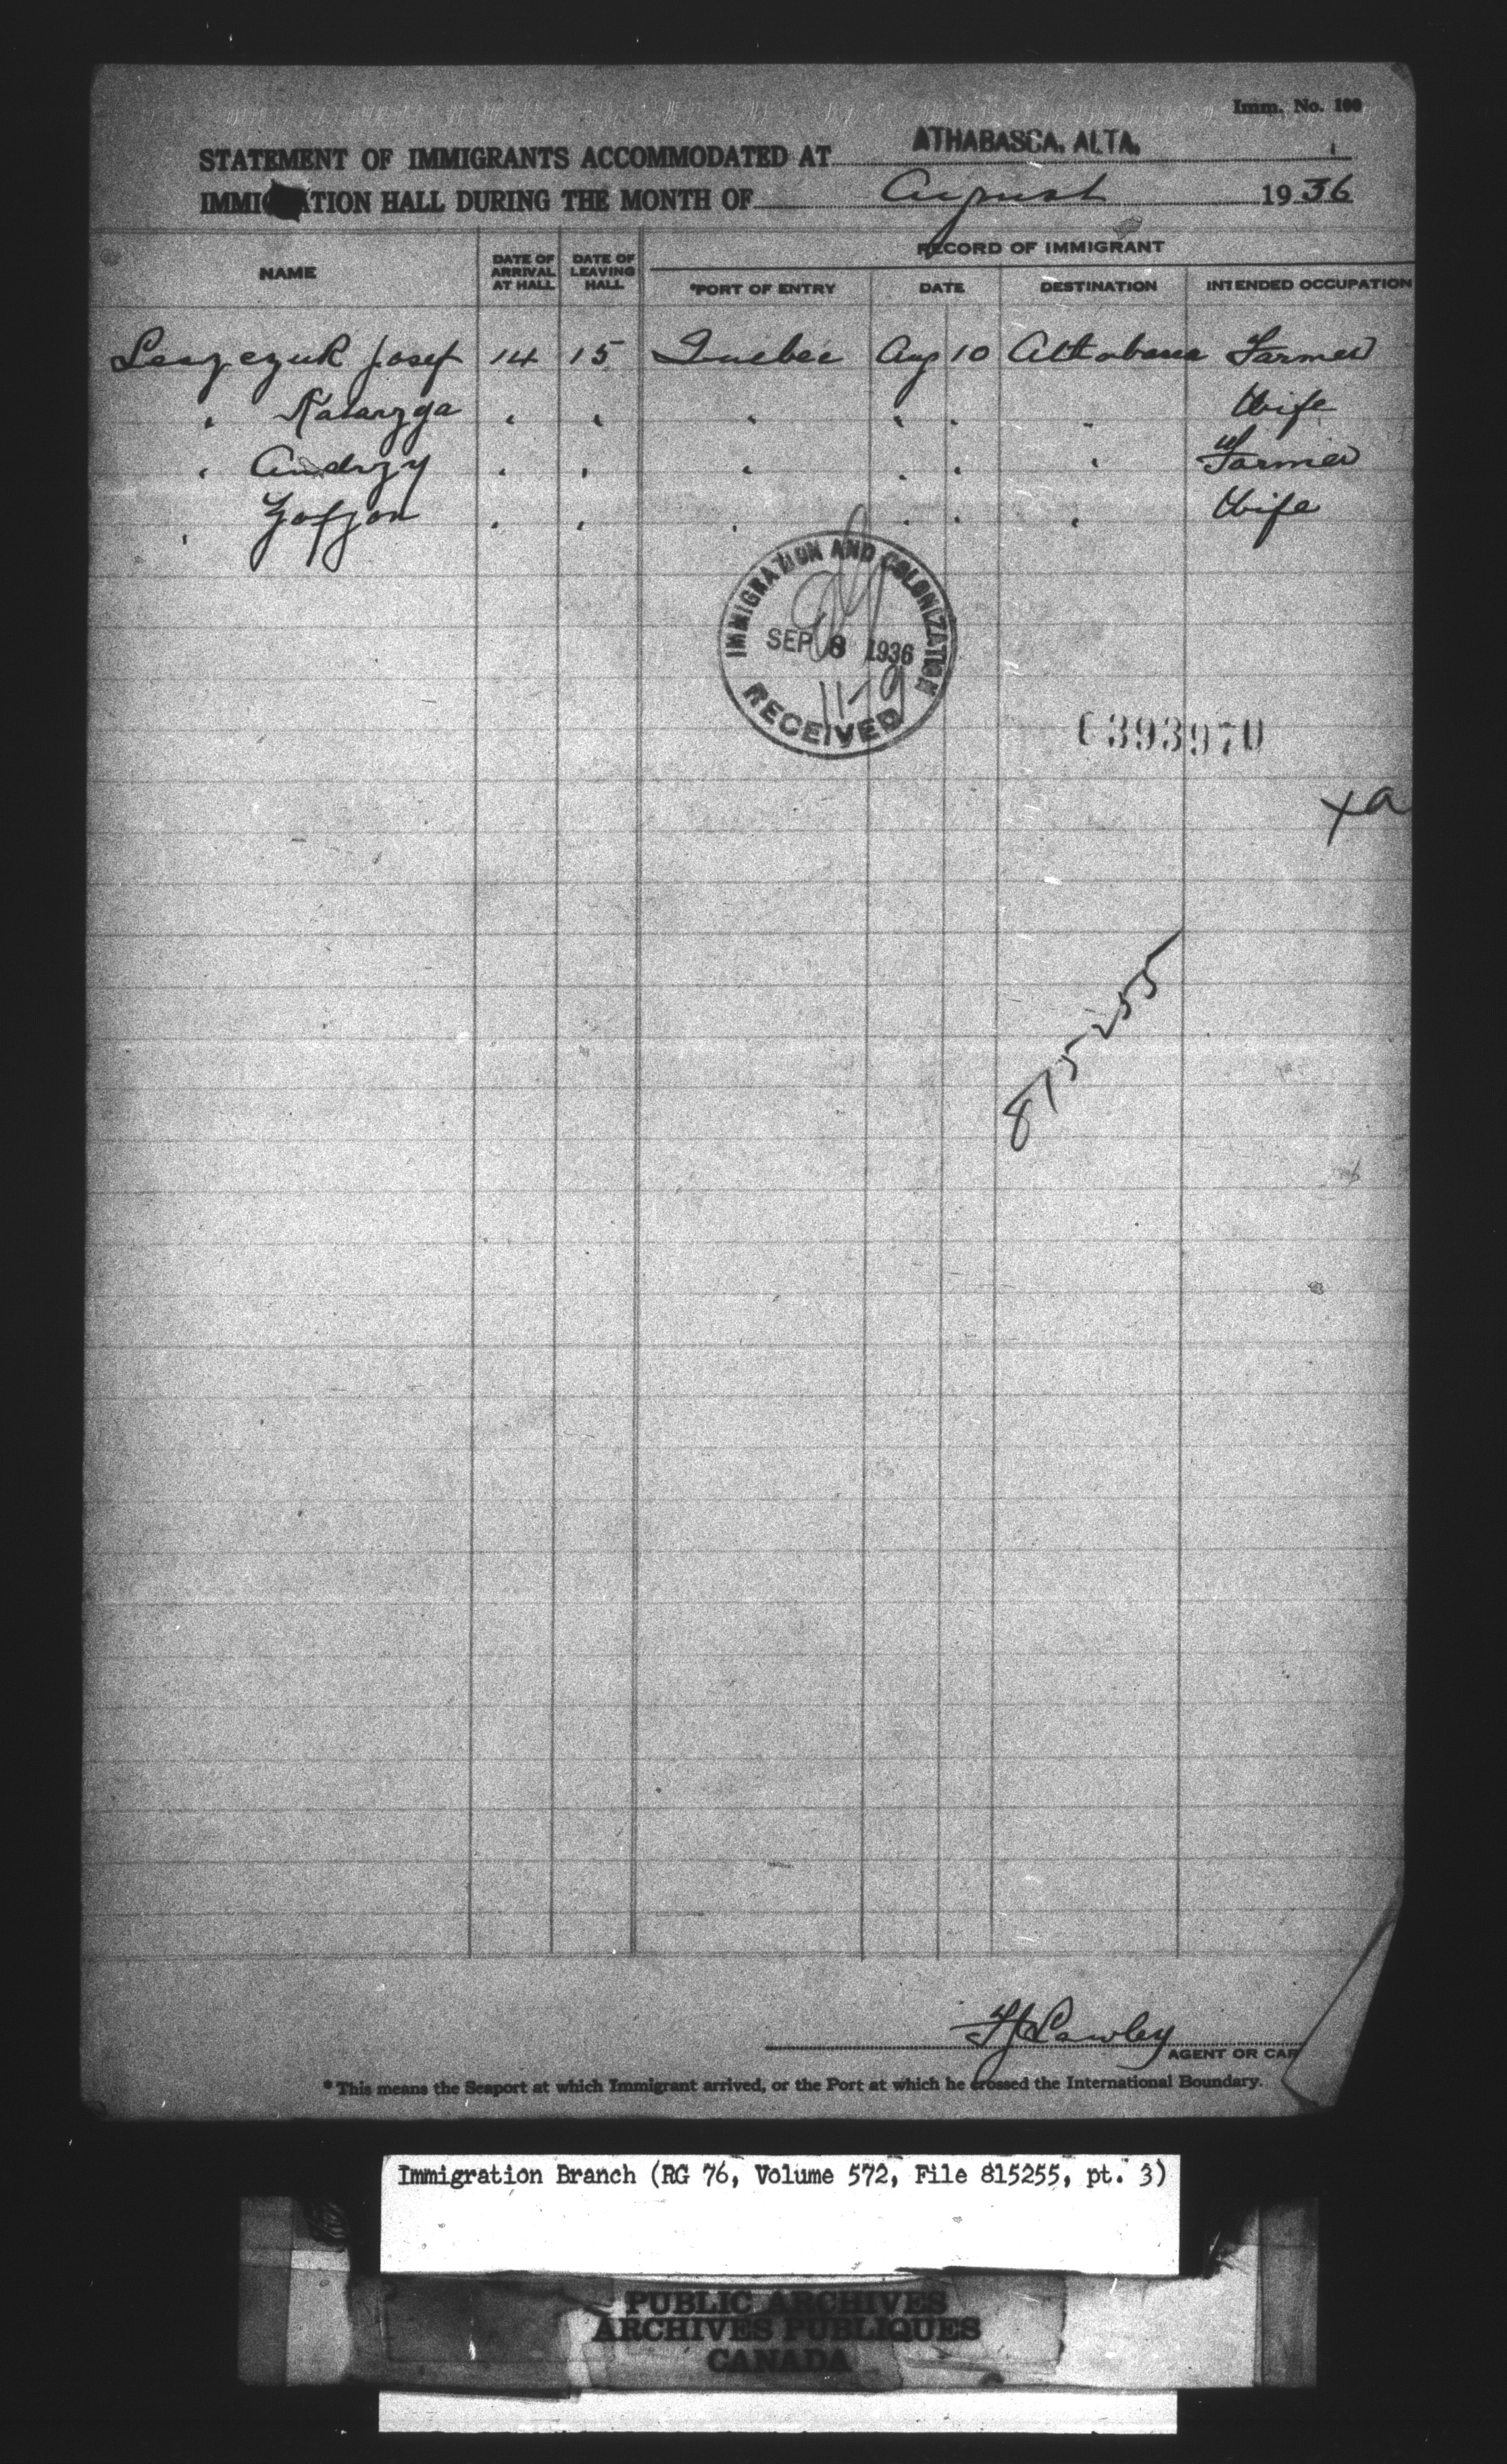 Imm. No. 100
STATEMENT OF IMMIGRANTS ACCOMMODATED AT ATHABASCA, ALTA.
IMMI ATION HALL DURING THE MONTH OF August 1936
RECORD OF IMMIGRANT
NAME DATE OF ARRIVAL AT HALL DATE OF LEAVING HALL *PORT OF ENTRY DATE DESTINATION INTENDED OCCUPATION
Leszczuk Josef 14 15 Quebec Aug 10 Athabasca Farmer
" Katarzya " " " " " " Wife
" Andrzy " " " " " " Farmer
" Zofjon " " " " " " Wife
IMMIGRATION AND COLONIZATION
SEP 8 1936
11-9
RECEIVED
6393970
xa
815255
FJ Lawley
AGENT OR CAR
*This means the Seaport at which Immigrant arrived, or the Port at which he crossed the International Boundary.
Immigration Branch (RG 76, Volume 572, File 815255, pt. 3)
PUBLIC ARCHIVES
ARCHIVES PUBLIQUES
CANADA